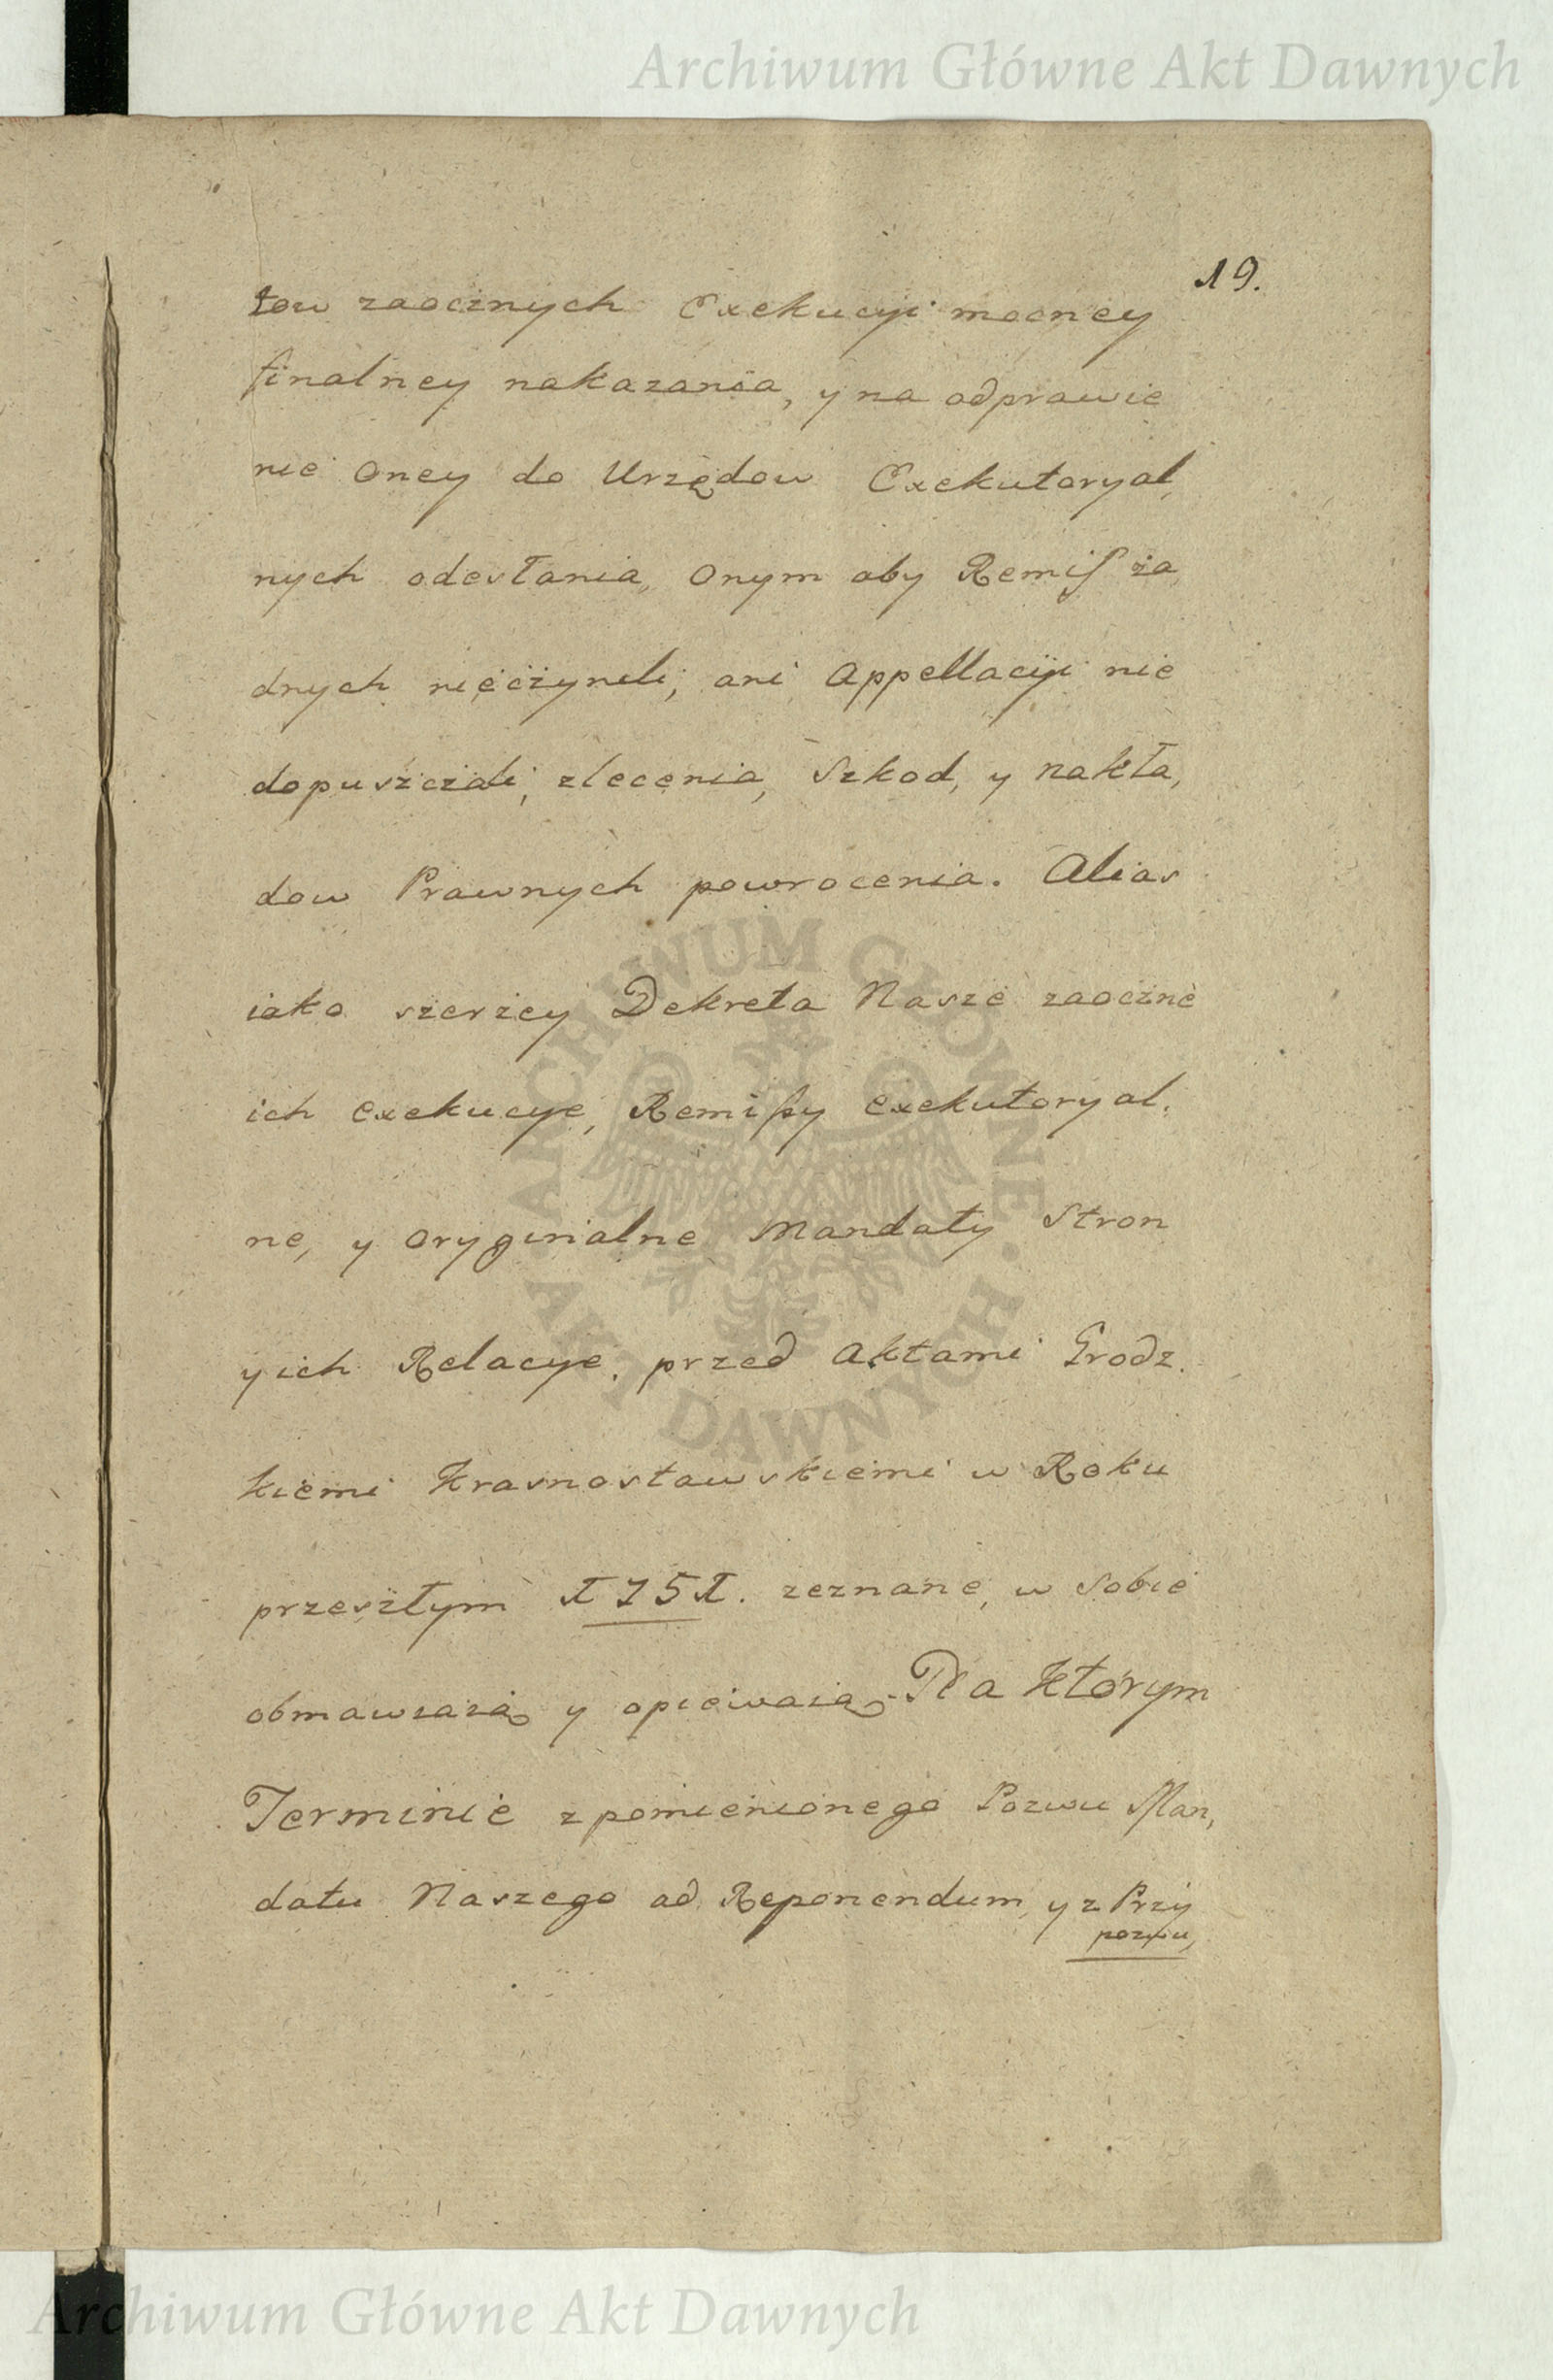 Archiwum Główne Akt Dawnych
19.
tow zaocznych Exekucyi mocney
finalney nakazania, y na odprawie
nie oney do Urzędow Exekutoryal,
nych odesłania, onym aby Remiſ ża,
dnych nieczynili, ani Appellacyi nie
dopuszczali, zlecenia, Szkod, y nakła,
dow Prawnych powrocenia. Alias
iako szerzey Dekreta Nasze zaoczne
ich exekucye, Remiſsy exekutoryal.
ne, y oryginalne Mandaty Stron
y ich Relacye, przed Aktami Grodz.
kiemi Krasnostawskiemi w Roku
przeszłym 1751. zeznane, w Sobie
obmawiaią y opiewaią. Na Ktorym
Terminie z pomienionego Pozwu Man,
datu Naszego ad Reponendum, y z Przy
pozwu,
ARCHIWUM GŁÓWNE AKT DAWNYCH
Archiwum Główne Akt Dawnych